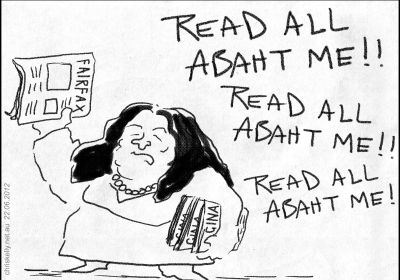 READ ALL
ABAHT ME!!
READ ALL
ABAHT ME!!
READ ALL
ABAHT ME!
FAIRFAX
GINA
GINA
GINA
chriskelly.net.au 22.06.2012